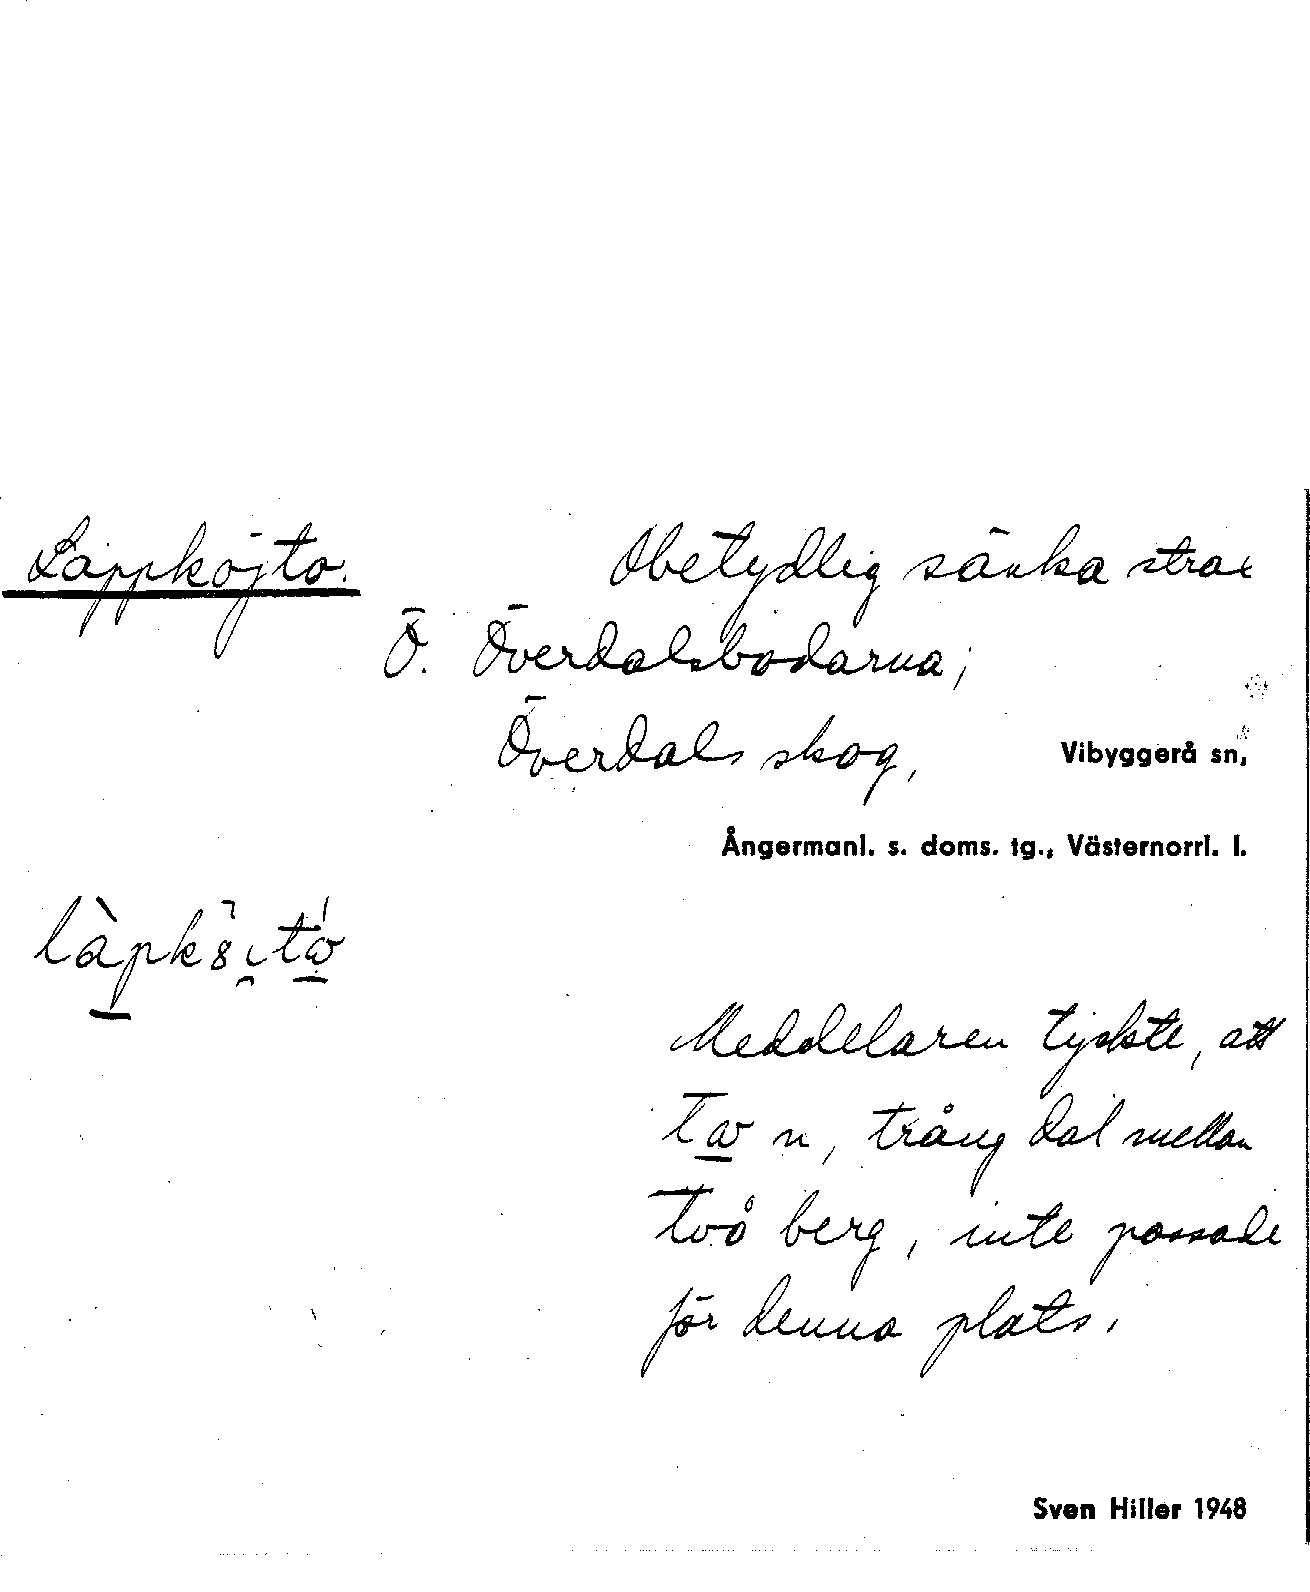 Lappköjto. Obetydlig sänka strax
Ö. Överdalsbodarna;
Överdals skog, Vibyggerå sn,
Ångermanl. s. doms. tg., Västernorrl. l.
Meddelaren tyckte, att
n, trång dal mellan
två berg, inte passade
för denna plats.
Sven Hiller 1948